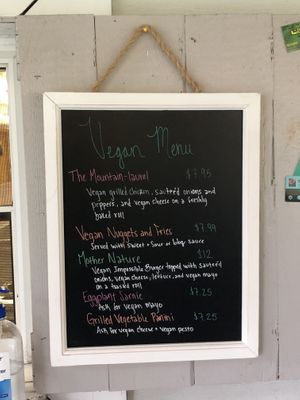 Vegan Menu
The Mountain-laurel $7.95
Vegan grilled chicken, sauteéd onions and
peppers, and vegan cheese on a freshly
baked roll
Vegan Nuggets and Fries $7.99
Served with sweet + sour or bbq sauce
Mother Nature $12
Vegan Impossible Burger topped with sauteéd
onions, vegan cheese, lettuce, and vegan mayo
on a toasted roll
Eggplant Sarnie $7.25
Ask for vegan mayo
Grilled Vegetable Panini $7.25
Ask for vegan cheese + vegan pesto